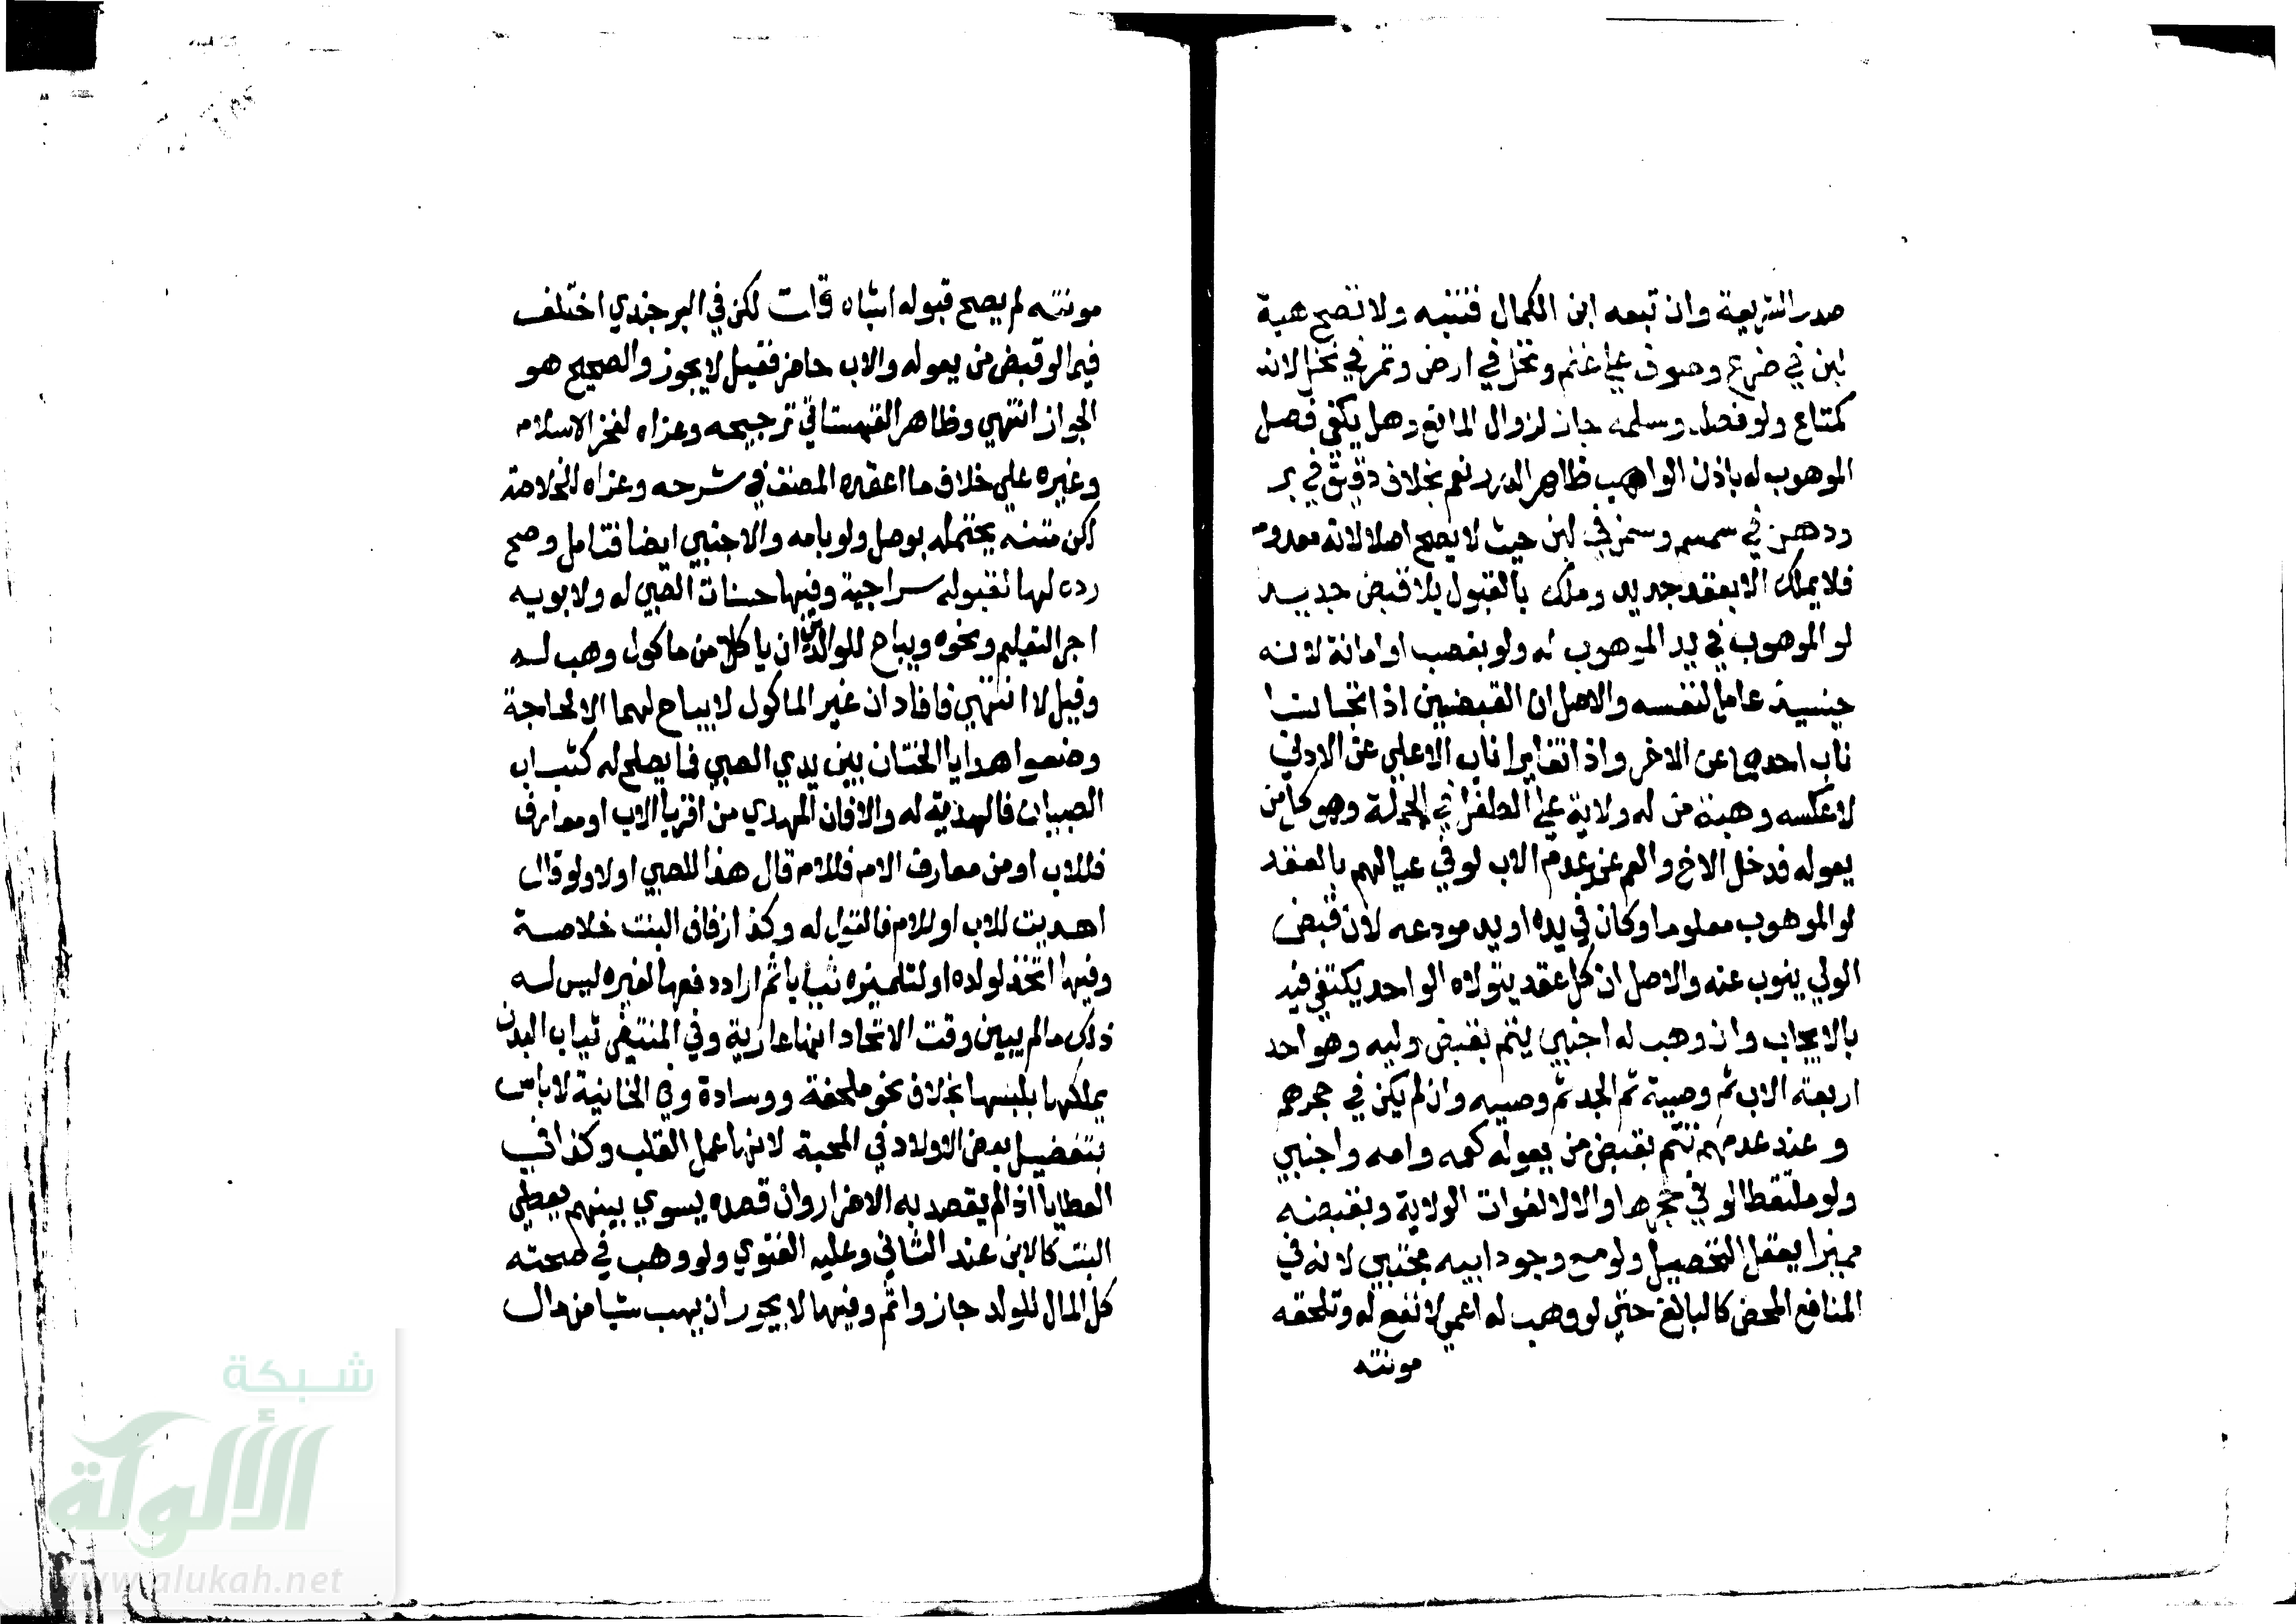 صدر الشريعة وان تبعه ابن الكمال فتنبه ولا تصح هبة
لبن في ضرع وصوف علي غنم ونخل في ارض وتمر في نخل لانه
كمتاع ولو فصل وسلمه جاز لزوال المانع وهل يكفي فصل
الموهوب له باذن الواهب ظاهر الدرر نعم بخلاف دقيق في بر
ودهن في سمسم وسمن في لبن حيث لا يصح اصلا لانه معدوم
فلا يملك الا بعقد جديد وملك بالقبول بلا قبض جديد
لو الموهوب في يد الموهوب له ولو بغصب او امانة لانه
حينيذ عامل لنفسه والاصل ان القبضين اذا تجانسا
ناب احدهما عن الاخر واذا تغايرا ناب الاعلي عن الادني
لا عكسه وهبة من له ولاية علي الطفل في الجملة وهو كل من
يعوله فدخل الاخ والعم عند عدم الاب لو في عيالهم بالعقد
لو الموهوب معلوما وكان في يده او يد مودعه لان قبض
الولي ينوب عنه والاصل ان كل عقد يتولاه الواحد يكتفي فيه
بالايجاب وان وهب له اجنبي يتم بقبض وليه وهو احد
اربعة الاب ثم وصية ثم الجد ثم وصيه وان لم يكن في حجرهم
وعند عدمهم تتم بقبض من يعوله كعمه وامه واجنبي
ولو ملتقطا لو في حجرها والا لا لفوات الولاية وبقبضه
مميزا يعقل التحصيل ولو مع وجود ابيه مجتبي لانه في
المنافع المحض كالبالغ حتي لو وهب له اعمي لا نفع له وتلحقه
مونته
مونته لم يصح قبوله اشباه قلت لكن في البرجندي اختلف
فيما لو قبض من يعوله والاب حاضر فقيل لا يجوز والصحيح هو
الجواز انتهي وظاهر القهستاني ترجيحه وعزاه لفخر الاسلام
وغيره علي خلاف ما اعتمده المصنف في شرحه وعزاه للخلاصة
لكن متنه يحتمله بوصل ولو بامه والاجنبي ايضا فتامل وصح
رده لها كقبوله سراجية وفيها حسنات الصبي له ولابويه
اجر التعليم ونحوه ويباح للوالدين ان ياكلا من ماكول وهب له
وقيل لا انتهي فافاد ان غير الماكول لا يباح لهما الا لحاجة
وضعوا هدايا الختان بين يدي الصبي فما يصلح له كثياب
الصبيان فالهدية له والا فان المهدي من اقربا الاب او معارف
فللاب او من معارف الام فللام قال هذا للصبي او لا ولو قال
اهديت للاب او للام فالقول له وكذا زفاف البنت خلاصة
وفيها اتخذ لولده او لتلميذه ثيابا ثم اراد دفعها لغيره ليس له
ذلك ما لم يبين وقت الاتخاد انها عارية وفي المنتقي ثياب البدن
يملكها بلبسها بخلاف نحو ملحفة ووسادة وفي الخانية لا باس
بتفضيل بعض الاولاد في المحبة لانها عمل القلب وكذا في
العطايا اذا لم يقصد به الاضرار وان قصده يسوي بينهم يعطي
البنت كالابن عند الثاني وعليه الفتوي ولو وهب في صحته
كل المال للولد جاز واثم وفيها لا يجوز ان يهب شيا من مال
شبكة
الألوكة
www.alukah.net